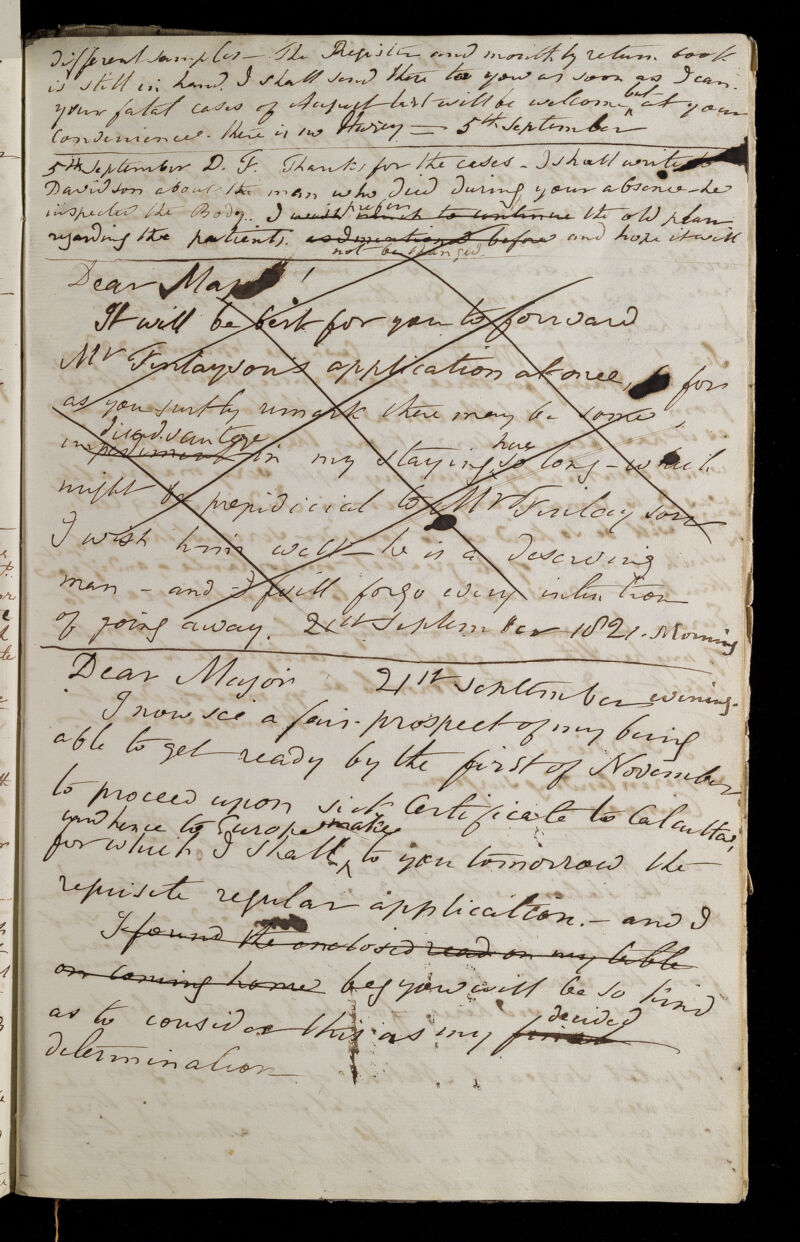 different samples - The Register and monthly return book
is still in hand. I shall send there to you as soon as I can.
your fatal cases of August last will be welcome, but at your
Convenience. there is no Hurry = 5th September
5th September D. F. Thanks for the cases - I shall write to
Davidson about the man who died during your absence - he
inspected the Body. I wish prefer much to continue the old plan
regarding the patients. as I mentioned before and hope it will
not be changed.
Dear Major!
It will be best for you to forward
Mr Finlayson's application at once, for
as you justly remark there may be some
disadvantage
impediment in my staying here so long - which
might be prejudicial to Mr Finlayson
I wish him well - he is a deserving
man - and I will forgo every intention
of going away. 21st September 1821. Morning
Dear Major 21st September evening.
I now see a fair prospect of my being
able to get ready by the first of November
to proceed upon sick Certificate to Calcutta,
and hence to Europe make
for which I shall to you tomorrow the
requisite regular application. - and I
I found the enclosed read on my table
on coming home beg you will be so kind
as to consider this as my final decided
determination